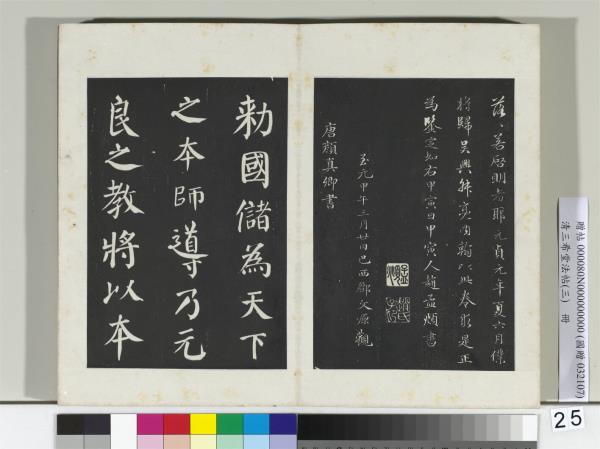 蓋善啓明者耶元貞元年夏六月僕
將歸吳興叔亮內翰以此卷求是正
為鑒定如右甲寅日甲寅人趙孟頫書
至元甲午三月廿日巴西鄧文原觀
唐顏真卿書
勅國儲為天下
之本師導乃元
良之教將以本
贈帖 000080N000000000 (圖贈 032107)
清三希堂法帖(三) 冊
25